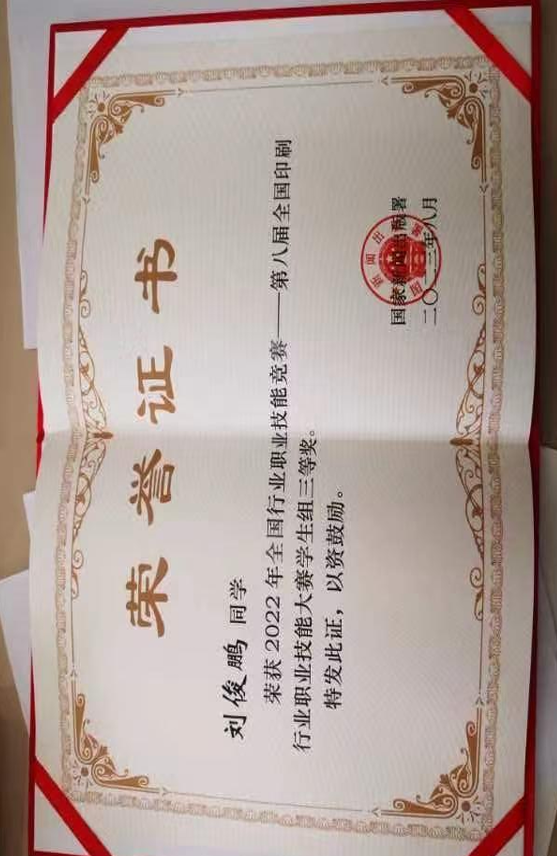 荣誉证书
刘俊鹏 同学
荣获 2022 年全国行业职业技能竞赛——第八届全国印刷
行业职业技能大赛学生组三等奖。
特发此证，以资鼓励。
国家新闻出版署
二〇二三年八月